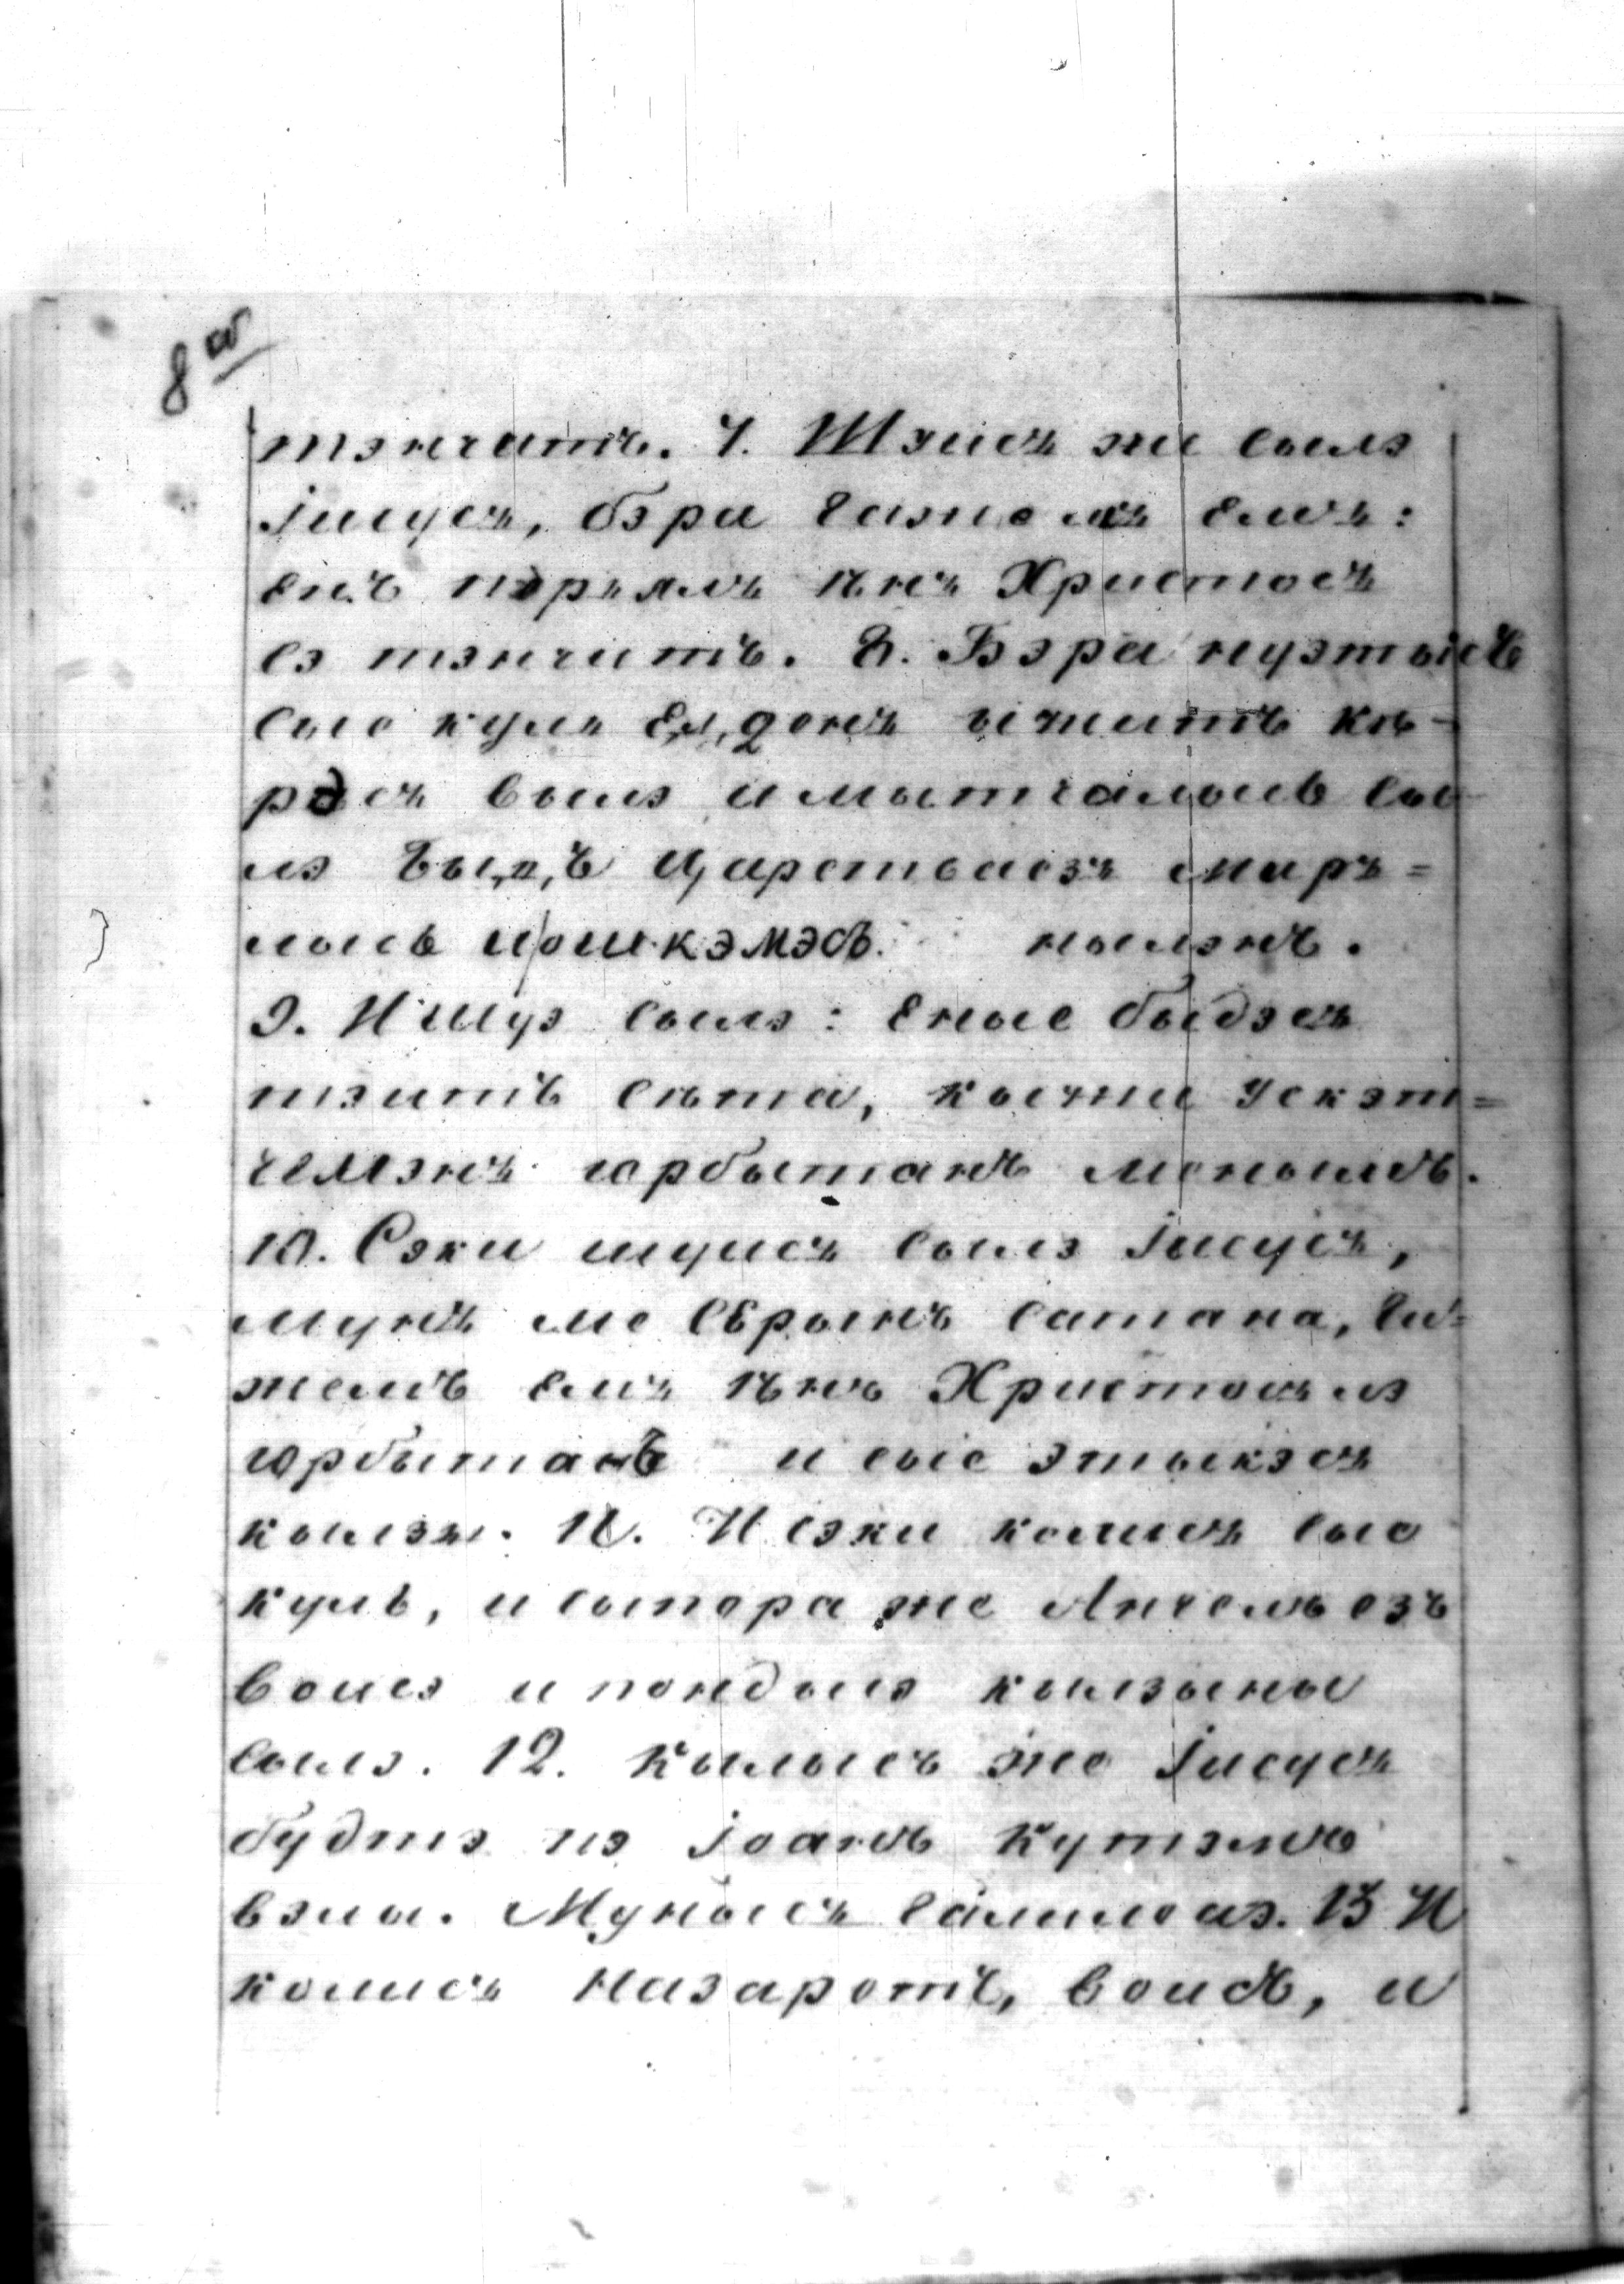 8 об
тэнчитъ. 7. Шэисъ жи сылэ
Iисусъ, бэри гажемъ емъ:
енъ пэръялъ iенъ Христосъ
сэ тэнчитъ. 8. Бэри нуэтысъ
сые куль ел,донъ ычишть къ-
рэсъ вылэ и мытчалысъ сы-
лэ быд,ъ царствоезъ миръ=
лысь ошкэмэсъ нылэнъ.
9. И шуэ сылэ: еные быдэсъ
тэитъ сѣта, кычи ускэт=
чемэнъ юрбытанъ менымъ.
10. Сэки шуисъ сылэ Iисусъ,
мунъ ме сѣрынъ сатана, ги=
жемъ емъ iенъ Христослэ
юрбытанъ и сыс этыкэсъ
кылзы. 11. И сэки колисъ сые
куль, и сыпора же Ангелъезъ
воисэ и пондысэ кылзыны
сылэ. 12. Кылысъ же Iисусъ
будтэ пэ Iоанъ кутэмъ
вэлы. Мунысъ Галилеаэ. 13 И
колисъ Назаретъ, воисъ, и